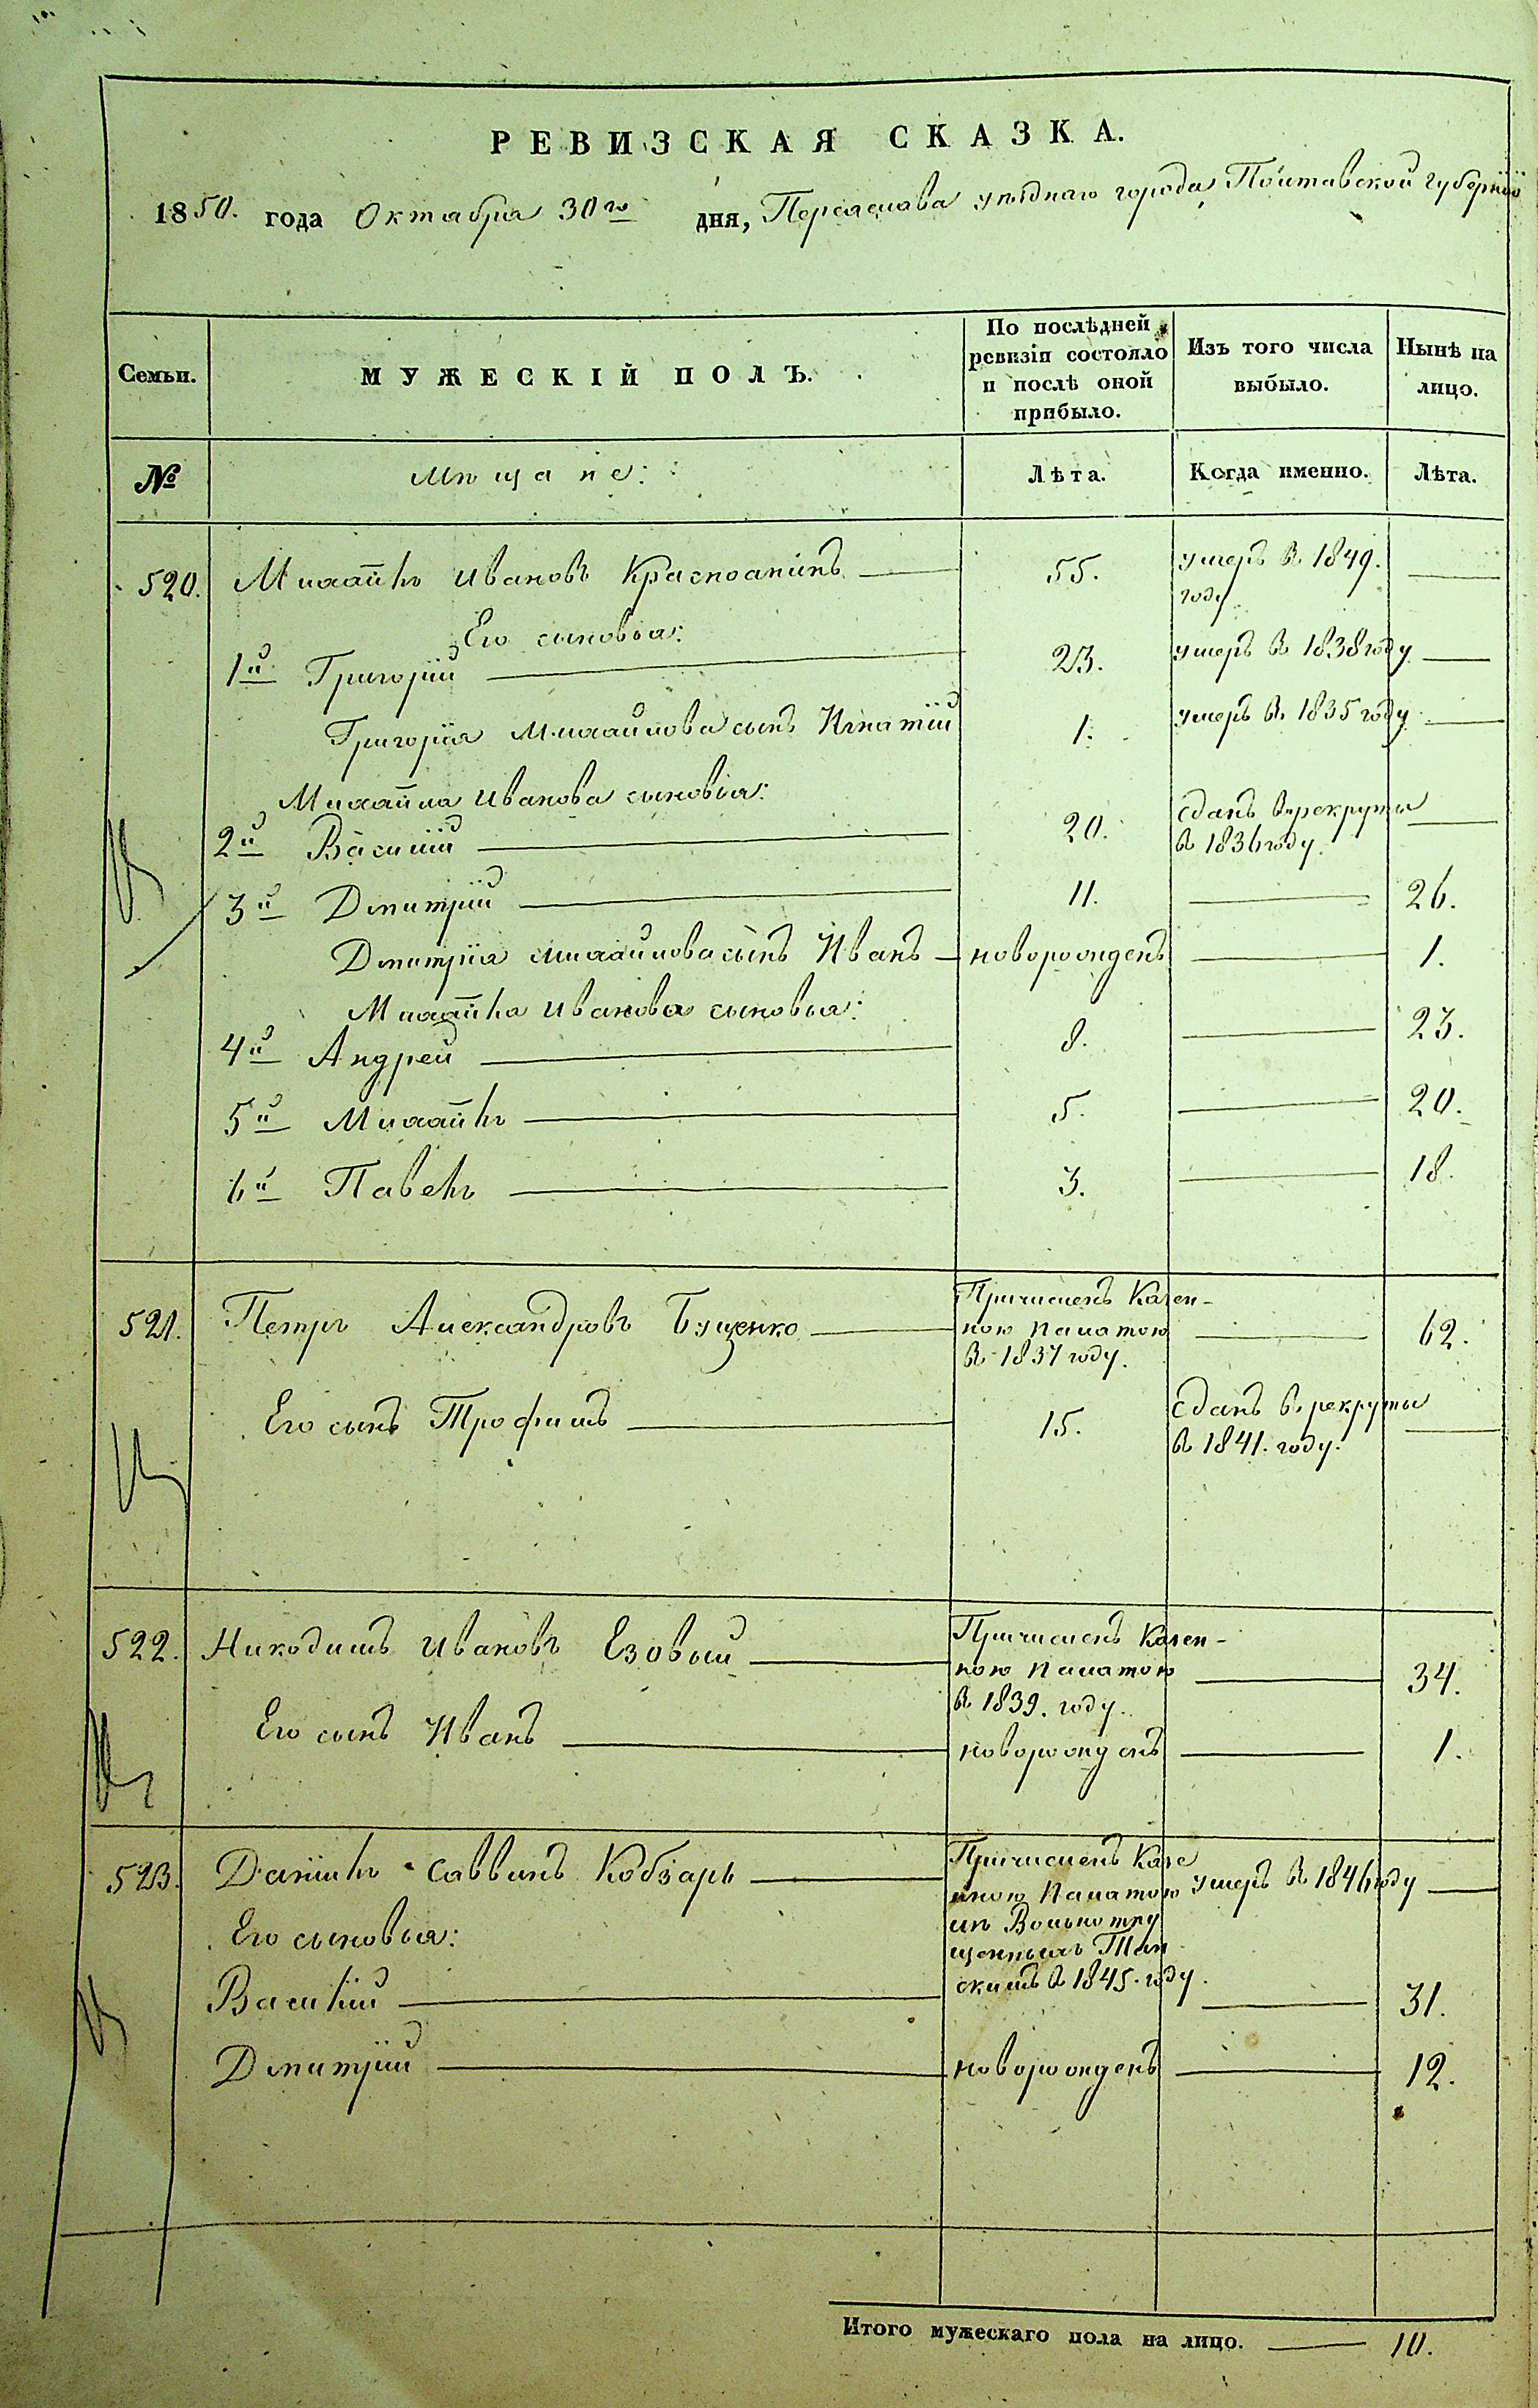 РЕВИЗСКАЯ СКАЗКА.
1850. года Октября 30го дня, Переяслава уѣзднаго города, Полтавской губерніи
Семьи. МУЖЕСКІЙ ПОЛЪ. По послѣдней ревизіи состояло и послѣ оной прибыло. Изъ того числа выбыло. Нынѣ на лицо.
№ Мѣщане: Лѣта. Когда именно. Лѣта.
520. Михайлъ Ивановъ 55. умеръ въ 1849. году
Его сыновья:
1й Григорій 23. умеръ въ 1838 году
Григорія Михайлова сынъ Игнатій 1. умеръ въ 1835 году
Михайла Иванова сыновья:
2й Василій 20. сданъ в рекруты въ 1836 году.
3й Дмитрій 11. 26.
Дмитрія Михайлова сынъ Иванъ новорожденъ 1.
Михайла Иванова сыновья:
4й Андрей 8. 23.
5й Михайлъ 5. 20.
6й Павелъ 3. 18.
521. Петръ Александровъ Бущенко Причисленъ Казен-
ною палатою
въ 1837 году. 62.
Его сынъ Трофимъ 15. сданъ в рекруты въ 1841. году.
522. Никодимъ Ивановъ Езовый Причисленъ Казен-
ною палатою
въ 1839. году. 34.
Его сынъ Иванъ новорожденъ 1.
523. Даніилъ Саввинъ Кобзарь Причисленъ Казе
нною палатою умеръ въ 1846 году
Его сыновья:
въ 1845. году.
Василій 31.
Дмитрій новорожденъ 12.
Итого мужескаго пола на лицо. 10.